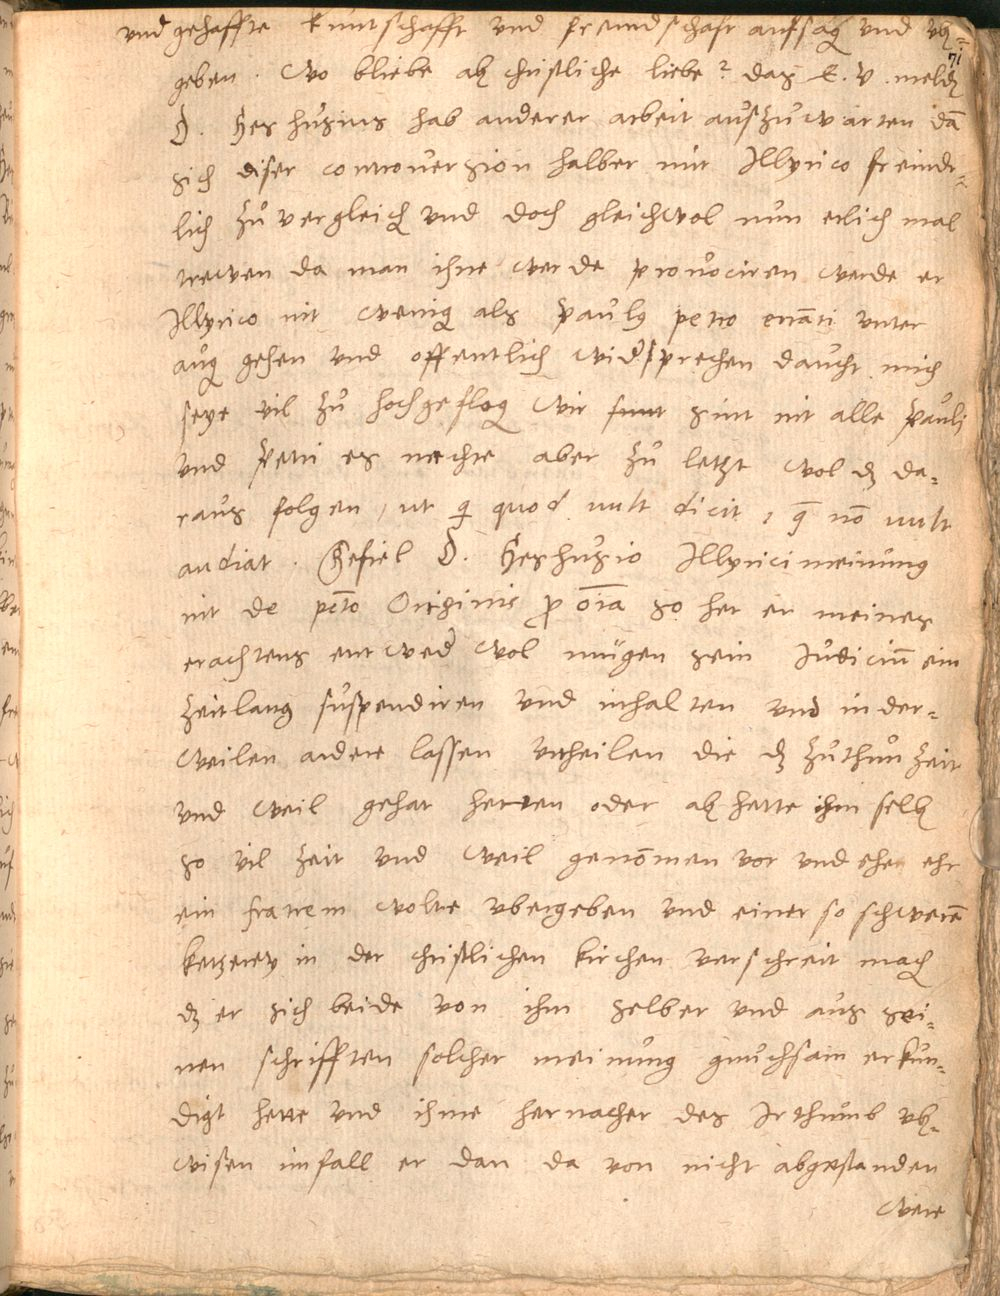 und gehaffte kuntschafft und freindschafft aufsag und vb=
71
geben. Wo bliebe ab christliche liebe? das E. V. meldt
D. Heshusius hab anderer arbeit auszuwarten dā
sich diser controuersion halber mit Illyrico freindt=
lich zu vergleich und doch gleichwol nun etlich mal
trewen da man ihne werde prouociren werde er
Illyrico nit wenig als Paulus petro errāti unter
aug gehen und offentlich widsprechen daucht mich
seye vil zu hochgeflog wir sint nit alle Pauli
und Petri es mechte aber zu letzt wol dz da=
raus folgen, ut q quod vult dicit, q nō vult
audiat. Gefiel D. Heshusio Illyrici meinung
nit de pctō Originis p oīa so het er meines
erachtens entwed wol mügen sein Iudiciū ein
zeitlang suspendiren und inhalten und in der=
weilen andere lassen urtheilen die dz zuthun zeit
und weil gehat hetten oder ab hette ihm selb
so vil zeit und weil genōmen vor und ehe ehr
ein fratrem wolte ubergeben und einer so schwerē
ketzerey in der christlichen kirchen verschreit mach
dz er sich beide von ihm selber und aus sei=
nen schrifften solcher meinung gnuchsam erkun=
digt hette und ihme hernacher des Irthumb vb=
wisen imfall er dan da von nicht abgestanden
were